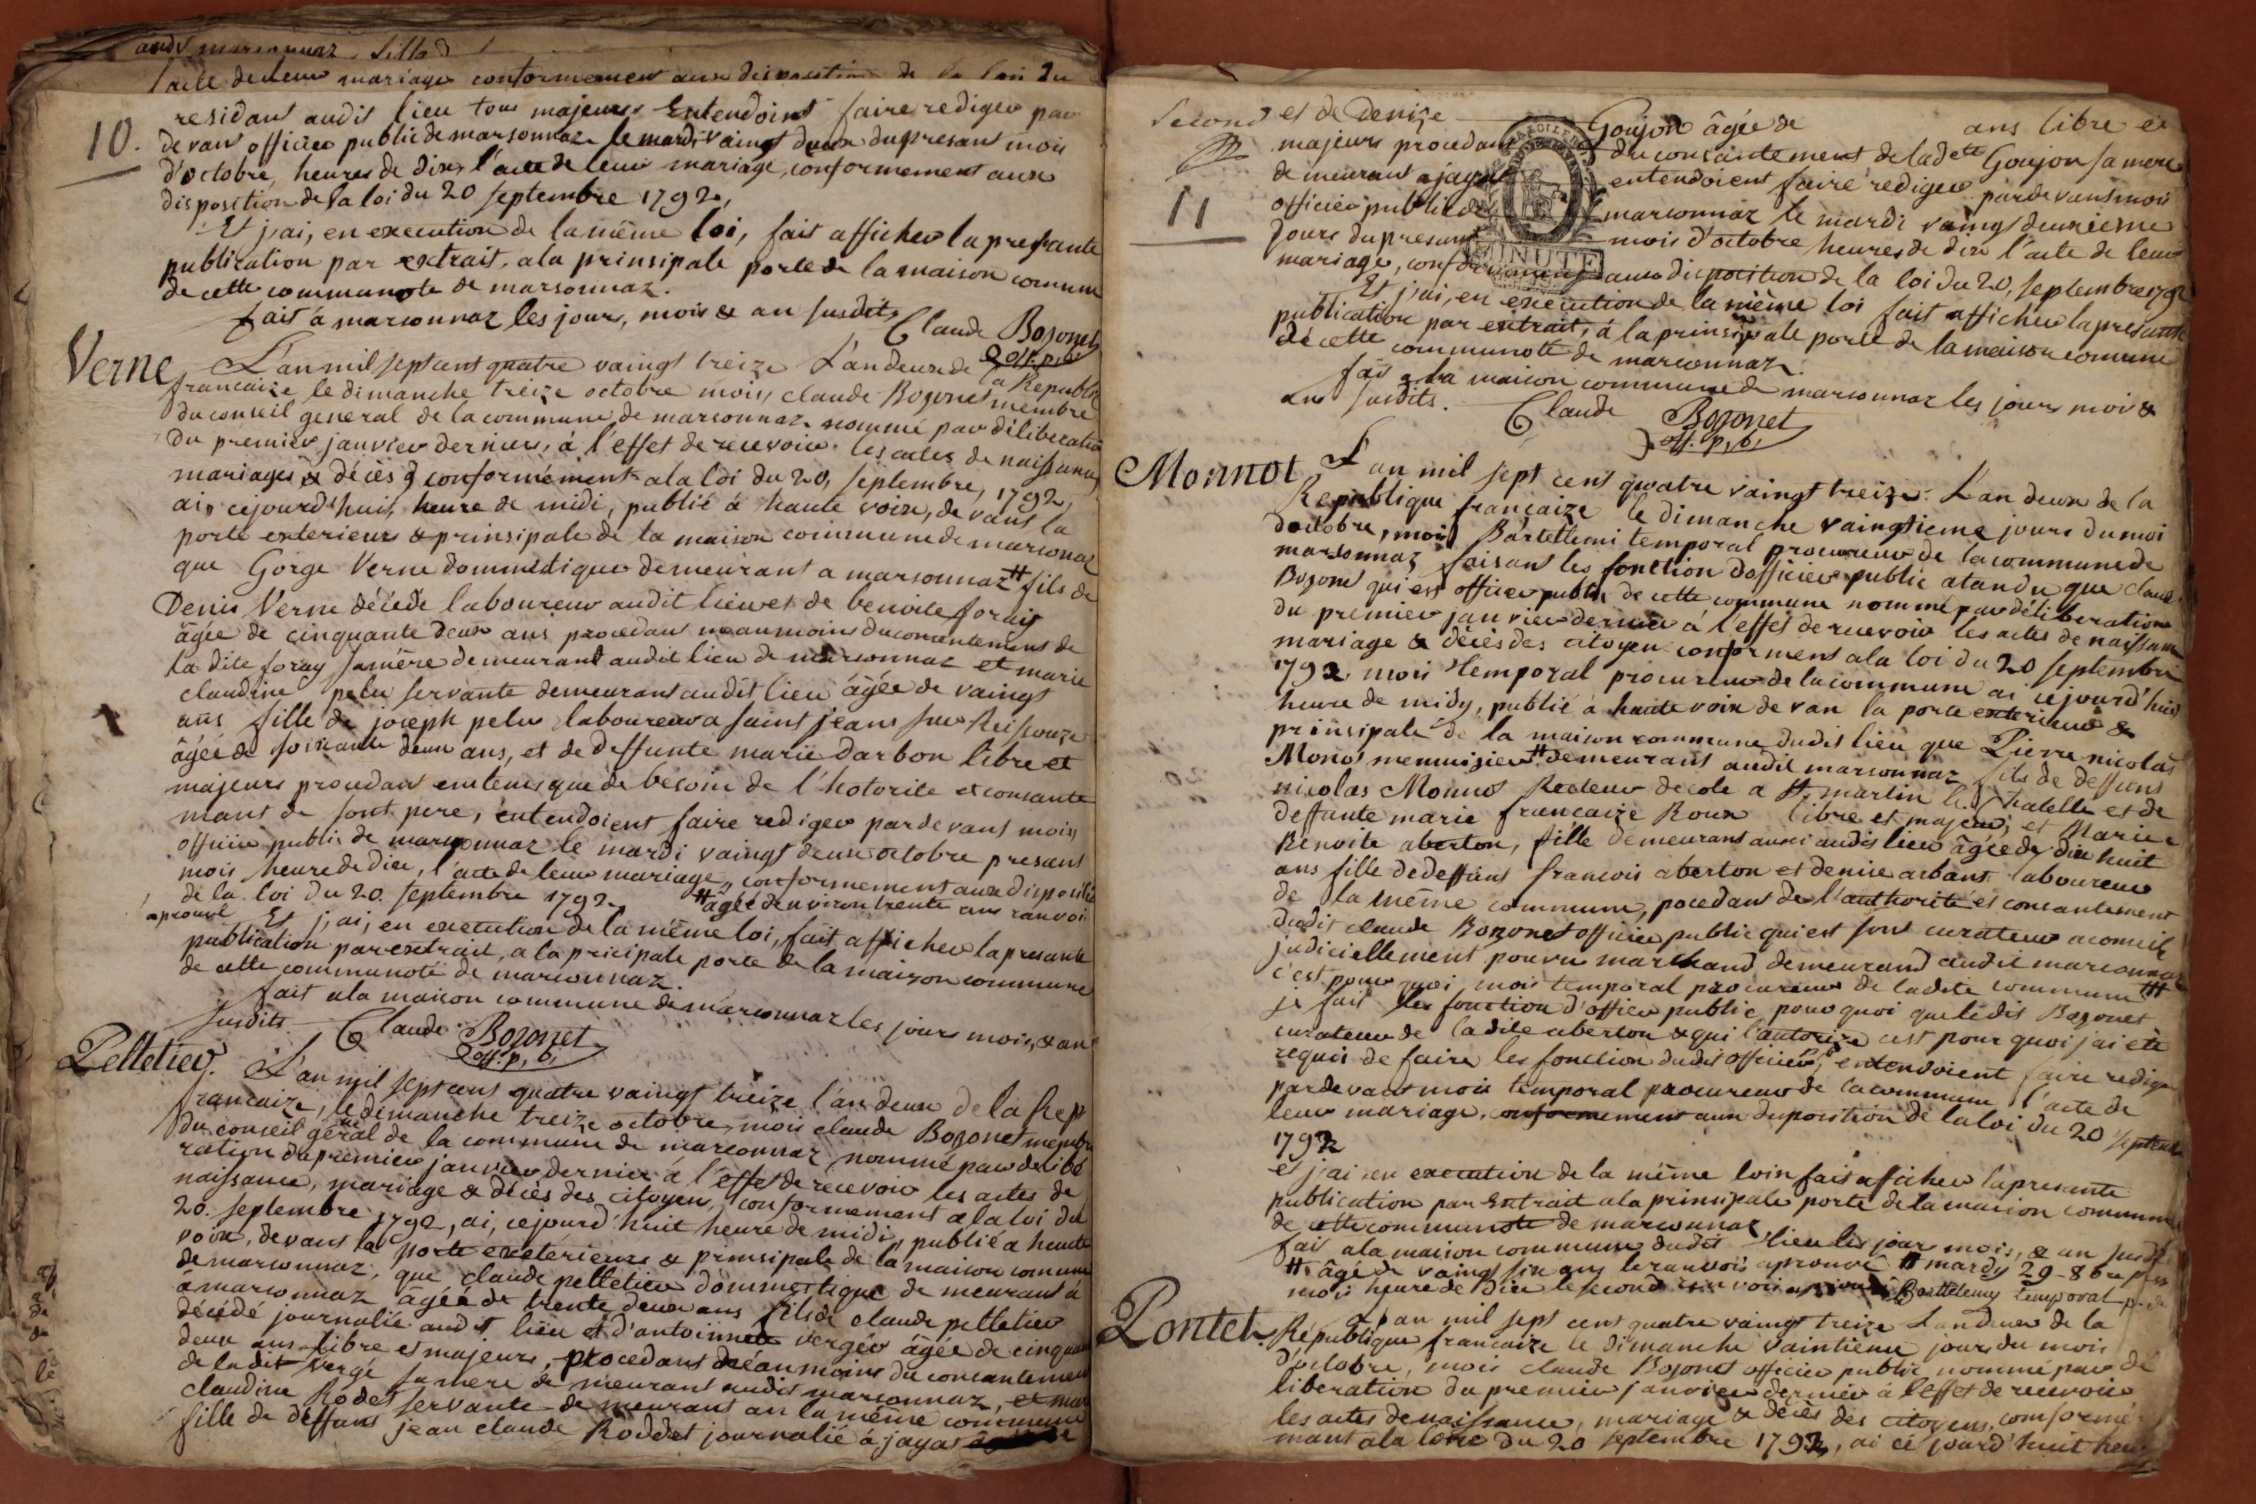 l'acte de leur mariage conformement aux disposition de la loi du
10.
residant audit lieu tous majeurs Entendoint faire rediger par
devant officier public de marsonnaz le mardi vaingt deux du presant mois
d'octobre, heures de dix, l'acte de leur mariage, conformement aux
disposition de la loi du 20 septembre 1792,
Et j'ai, en execution de la même loi, fait afficher la presante
publication par extrait, a la prinsipale porte de la maison comune
de cette communote de marsonnaz.
fait à marsonnaz les jours, mois & an susdits
Claude Bozonet
off. p, b,
Verne
L'an mil sept cent quatre vaingt treize L'an deux de la Republi
francaize le dimanche treize octobre mois, claude Bozonet membre
du conseil general de la commune de marsonnaz nommé par déliberation
du premier janvier dernier, à l'effet de recevoir les actes de naissance,
mariages & décès conformément a la loi du 20, septembre, 1792,
ai, cejourd'huit, heure de midi, publié à haute voix, devant la
porte exterieure & prinsipale de la maison commune de marsonaz
que Gorge Verne dommestique demeurant a marsonnaz # fils de
Denis Verne décédé laboureur audit lieu et de benoite foray
âgée de cinquante deux ans procedant neaumoins du consantement de
la dite foray sa mère demeurant audit lieu de marsonnaz et marie
claudine pelu servante demeurant audit lieu âgée de vaingt
ans fille de joseph pelu laboureur a saint jeans sur Reissouze
âgée de soixante deux ans, et de deffunte marie darbon libre et
majeurs procedant en tems que de besoin de l'hotorite et consante
mant de sont pere, entendoient faire rediger pardevant mois
officier public de marsonnaz le mardi vaingt deux octobre presant
mois heure de dix, l'acte de leur mariage, conformement aux dispositio
de la loi du 20. septembre 1792. # agée d'environ trente ans ranvoi
aprouvé Et j'ai, en execution de la même loi, fait afficher la presante
publication par extrait, a la pricipale porte de la maizon commune
de cette communoté de marsonnaz.
fait a la maison commune de marsonnaz les jours mois, & an
susdits
Claude Bozonet
off. p, b,
Pelletier.
L'an mil sept cent quatre vaingt treize l'an deux de la Rep
francaize, le demanche treize octobre, mois claude Bozonet membre
du conseil géral de la commune de marsonnaz, nommé par delibé
ration du premier janvier dernier à l'effet de recevoir les actes de
naissance, mariage & décès des citoyen, conformement a la loi du
20. septembre 1792, ai, cejourd'huit heure de midi, publié a haute
voix, devant la porte exeterieure & prinsipale de la maison comune
de marsonnaz, que claude pelletier dommestique demeurant à
a marsonnaz âgéé de trente deux ans fils de claude pelletier
décédé journalié audit lieu et d'antoinnette vergér âgée de cinquan
deux ans libre et majeurs, procedant néanmoins du consantement
de ladit vergé sa mere demeurant audit marsonnaz, et mar
claudine Rodet servante demeurant an la même commune
fille de deffans jean claude Roddet journalié à jayat
second et de Denize Goujon âgée de ans libre et
majeurs procedant du consantement de la dette Goujon sa mere
demeurant a jayat entendoient faire rediger pardevant mois
11
officier public de marsonnaz le mardi vaingt deuxieme
jours du presant mois d'octobre heures de dix l'acte de leur
mariage, conformement aux disposition de la loi du 20, septembre 1792
Et j'ai, en execution de la même loi fait afficher la presante
publication par extrait, à la prinsipale porte de la maison comune
de cette communoté de marsonnaz.
fait a la maison commune de marsonnaz les jours mois &
ans susdits.
Claude Bozonet
off. p, b,
MINUTE
Monnot
L'an mil sept cent quatre vaingt treize. L'an deux de la
Republique françaize le dimanche vaingtieme jours du moi
doctobre, mois Bartellemi temporal procureur de la commune de
marsonnaz faisant les fonction dofficier public atandu que claude
Bozonet qui est officier public de cette commune nommé par déliberation
du premier janvier dernier à l'effet de recevoir les actes de naissance
mariage & décès des citoyen conforment a la loi du 20 septembre
1792 mois temporal procureur de la commune ai cejourd'huit
heure de midy, publié à haute voix devan la porte exterieur &
prinsipale de la maison commune dudit lieu que Pierre nicolas
Monot menuizier # demeurant audit marsonnaz fils de deffunt
nicolas Monnot Recteur decole a st. martin le chatelle et de
deffunte marie francaize Roux libre et majeur, et Marie
Benoite aberton, fille demeurant aussi audit lieu âgée de dix huit
ans fille de deffunt francois aberton et denise arbant laboureur
de la même commune, pocedant de l'authorité et consantement
dudit claude Bozonet officier public qui est sont curateur a conseil
judiciellement pourvu marchand demeurand audit marsonnaz
c'est pour quoi mois temporal procureur de la dite commune #
je fait les fonction d'officier public, pour quoi que ledit Bozonet
curateur de la dite aberton & qui l'autorize cest pour quoi j'ai été
requis de faire les fonction dudit officier, entendoient faire rediger
pardevant mois temporal procureur de la commune l'acte de
leur mariage, conformement aux disposition de la loi du 20 septembre
1792
et j'ai en execution de la même loix fait afficher la presente
publication par Extrait a la prinsipale porte de la maison commune
de cette communoté de marsonnaz
fait a la maison commune dudit lieu les jour mois, & an susdit
# âgé de vaingt six ans le ranvois aprouvé # mardy 29 - 8bre
mois heure de dix le second ranvois Barthelemy temporal
Pontet.
L'an mil sept cent quatre vaingt treize L'an deux de la
République francaize le dimanche vaintieme jours du mois
d'octobre, mois claude Bozonet officier public nommé par dé
liberation du premier janvier dernier à l'effet de recevoir
les actes de naissance, mariage & décès des citoyens conformé
mant a la loix du 20 septembre 1792, ai cejourd'huit heure